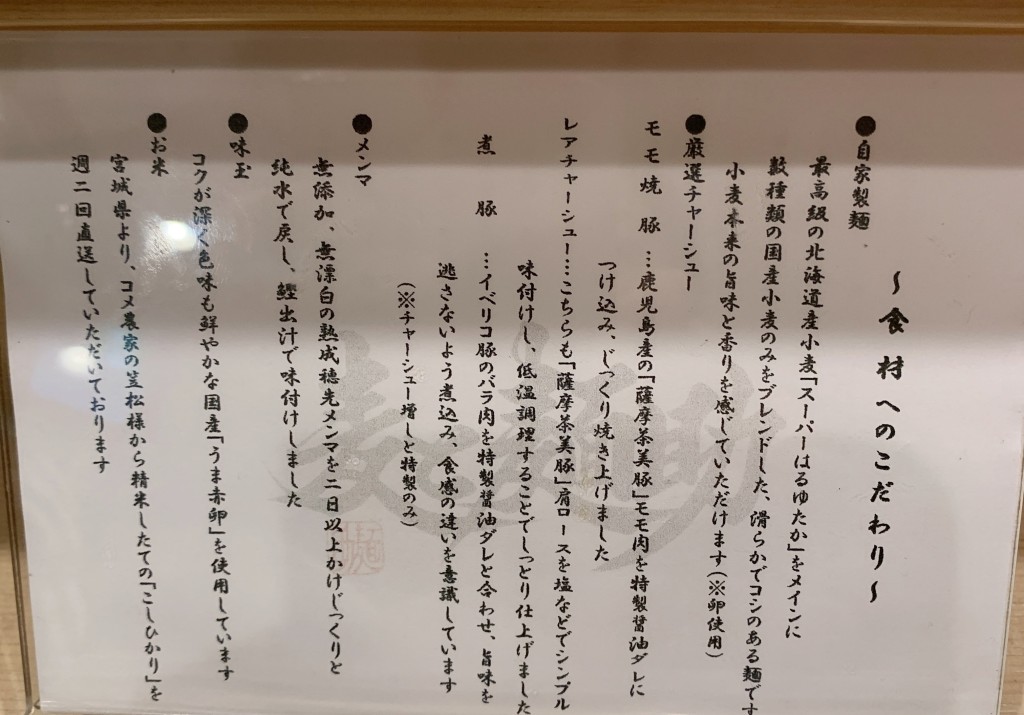 ～食材へのこだわり～
●自家製麺
最高級の北海道産小麦「スーパーはるゆたか」をメインに
数種類の国産小麦のみをブレンドした、滑らかでコシのある麺です
小麦本来の旨味と香りを感じていただけます(※卵使用)
●厳選チャーシュー
モモ焼豚…鹿児島産の「薩摩茶美豚」モモ肉を特製醤油ダレに
つけ込み、じっくり焼き上げました
レアチャーシュー…こちらも「薩摩茶美豚」肩ロースを塩などでシンプル
味付けし、低温調理することでしっとり仕上げました
煮豚…イベリコ豚のバラ肉を特製醤油ダレと合わせ、旨味を
逃さないよう煮込み、食感の違いを意識しています
(※チャーシュー増しと特製のみ)
●メンマ
無添加、無漂白の熟成穂先メンマを二日以上かけじっくりと
純水で戻し、鰹出汁で味付けしました
●味玉
コクが深く色味も鮮やかな国産「うま赤卵」を使用しています
●お米
宮城県より、コメ農家の笠松様から精米したての「こしひかり」を
週二回直送していただいております